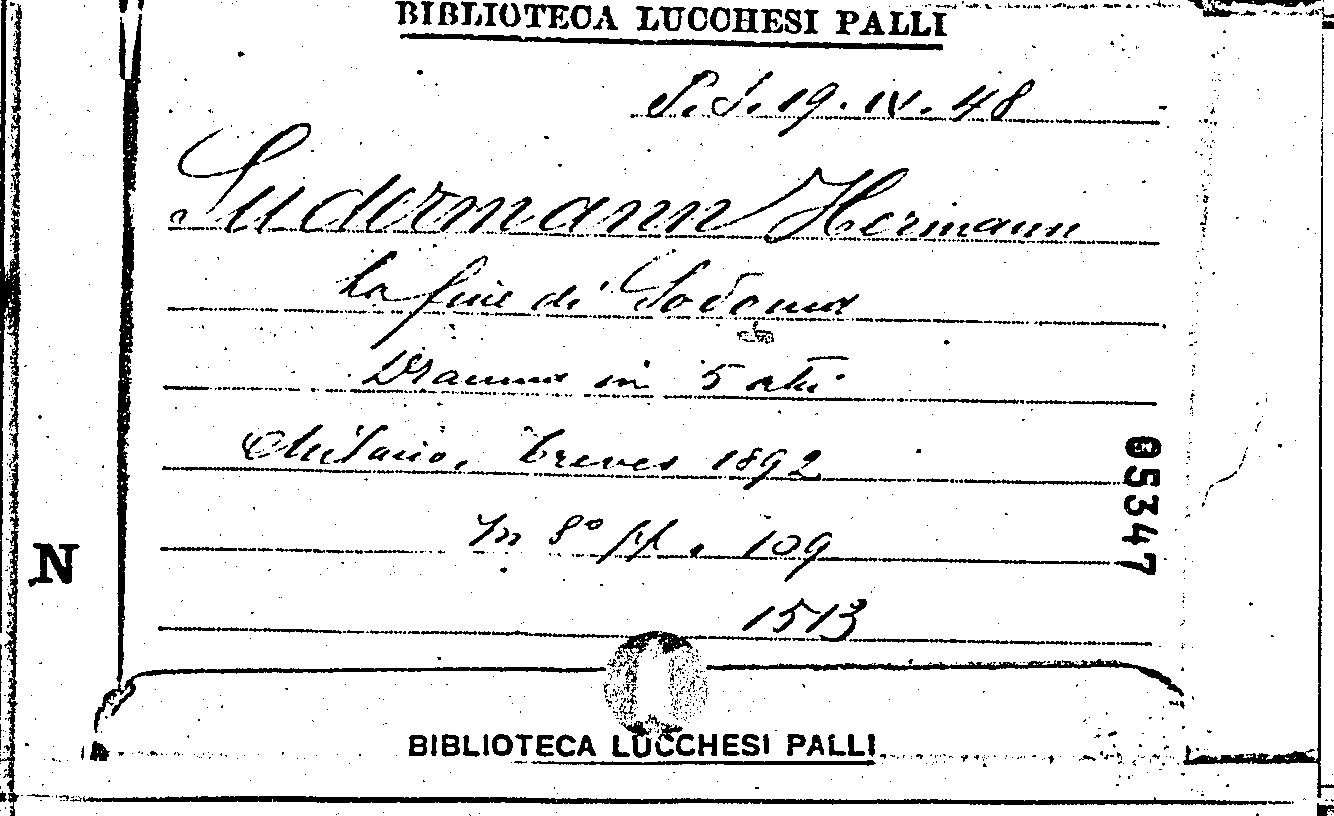 BIBLIOTECA LUCCHESI PALLI
S. J. 19. IV. 48
Sudermann Hermann
La fine di Sodoma
Dramma in 5 atti
Milano, Treves 1892
In 8° pp. 109
1513
05347
N
BIBLIOTECA LUCCHESI PALLI